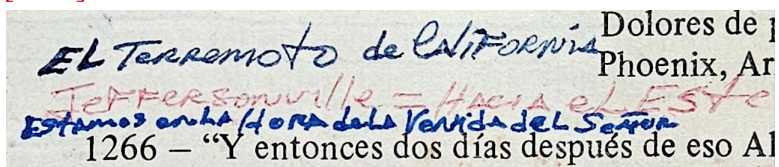 Dolores de
EL Terremoto de CALIFORNIA
Phoenix, Ar
JeFFersonville = HACIA eL ESTe
Estamos en la Hora de la Venida deL Señor
1266 – “Y entonces dos días después de eso Al